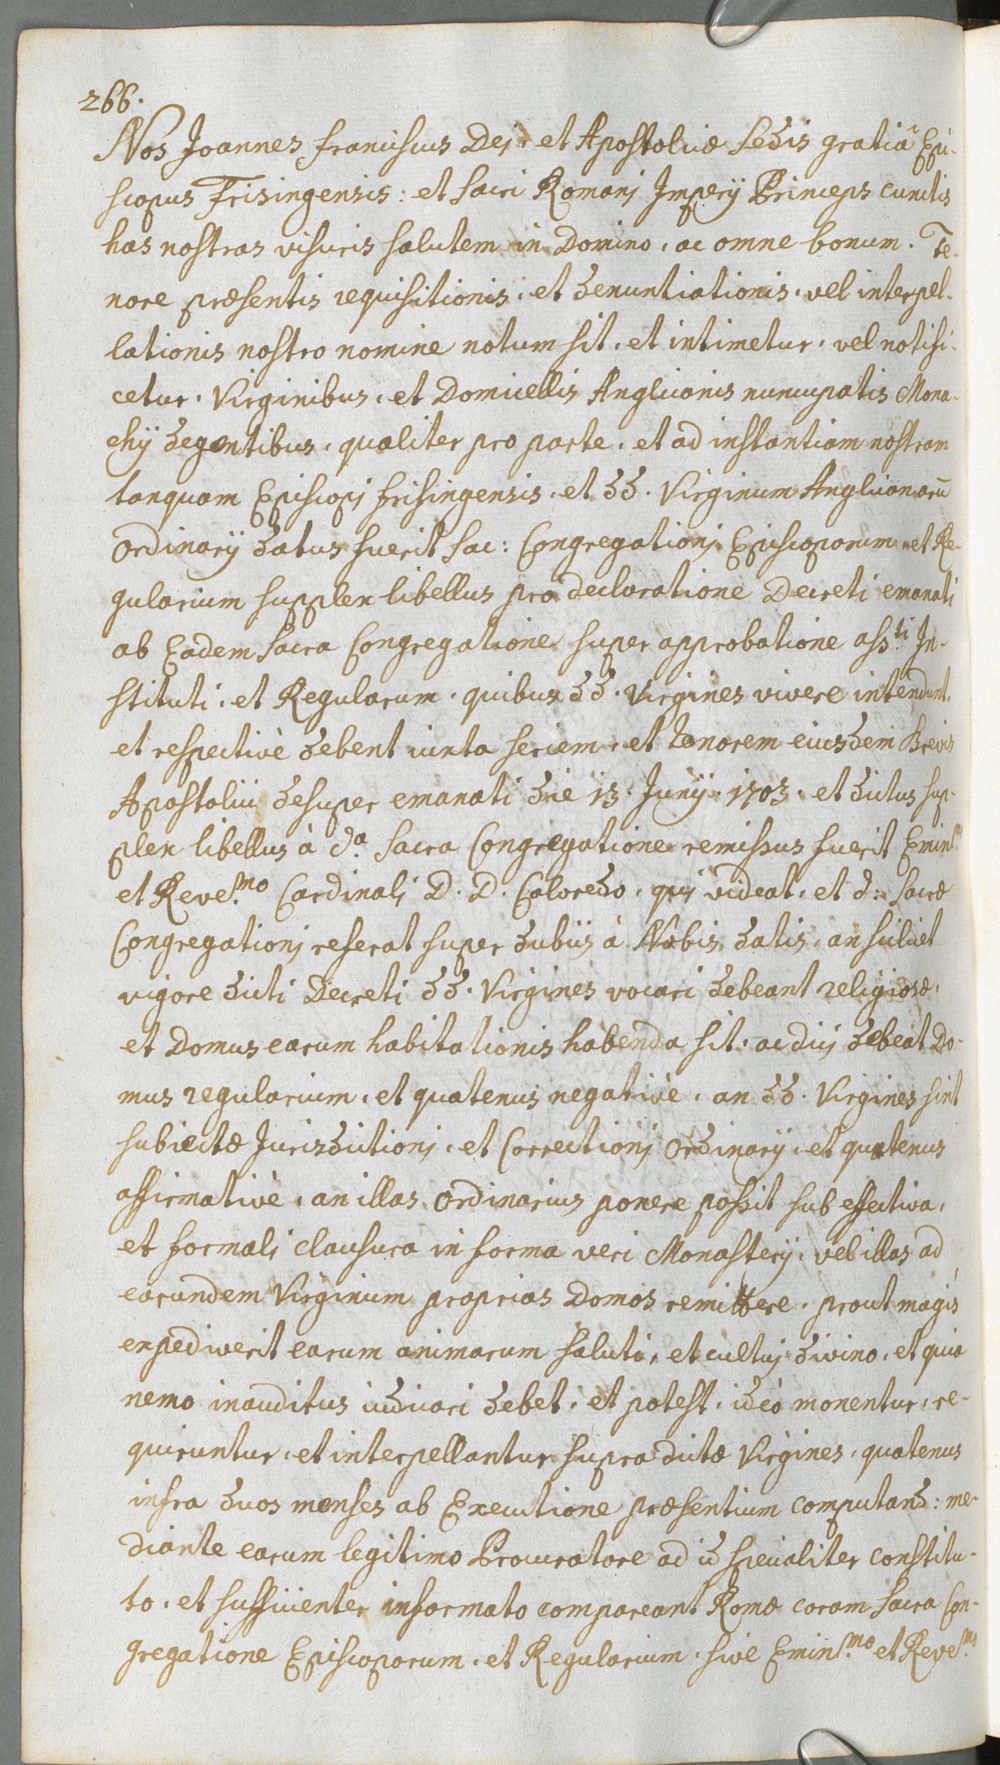 266.
Nos Joannes Franciscus Dej, et Apostolicæ Sedis gratiâ Epi-
scopus Frisingensis: et Sacri Romanj Imperij Princeps cunctis
has nostras visuris salutem in Domino, ac omne bonum. Te-
nore præsentis requisitionis, et denuntiationis, vel interpel-
lationis nostro nomine notum sit, et intimetur, vel notifi-
cetur, Virginibus, et Domicellis Anglicanis nuncupatis Mona-
chij degentibus, qualiter pro parte, et ad instantiam nostram
tanquam Episcopj Frisingensis, et dd. Virginum Anglicanarū
ordinarij datus fuerit Sac: Congregationj Episcoporum, et Re-
gularium supplex libellus pro declaratione Decreti emanati
ab Eadem Sacra Congregatione super approbatione ass.ti In-
stituti, et Regularum, quibus dd. Virgines vivere intendunt,
et respectivè debent iuxta seriem, et tenorem eiusdem Brevis
Apostolici desuper emanati die 13. Junij. 1703. et dictus sup-
plex libellus à d.a Sacra Congregatione remissus fuerit Emin.mo
et Reve.mo Cardinali D. D. Coloredo, qui videat, et d: Sacræ
Congregationj referat super dubiis à Nobis datis, an scilicet
vigore dicti Decreti dd. Virgines vocari debeant religiosæ,
et Domus earum habitationis habenda sit, ac dicj debeat Do-
mus regularium, et quatenus negativè, an dd. Virgines sint
subiectæ Jurisdictionj, et Correctionj ordinarij, et quatenus
affirmativè, an illas ordinarius ponere possit sub effectiva,
et formali clausura in forma veri Monasterij, vel illas ad
earundem Virginum proprias Domos remittere, prout magis
expediverit earum animarum saluti, et cultuj divino, et quia
nemo inauditus iudicari debet, et potest, ideò monentur, re-
quiruntur, et interpellantur supradictæ Virgines, quatenus
infra duos menses ab Executione præsentium computand: me-
diante earum legitimo Procuratore ad id specialiter constitu-
to, et sufficienter informato compareant Romæ coram Sacra Con-
gregatione Episcoporum, et Regularium, sive Emin.mo et Reve.mo